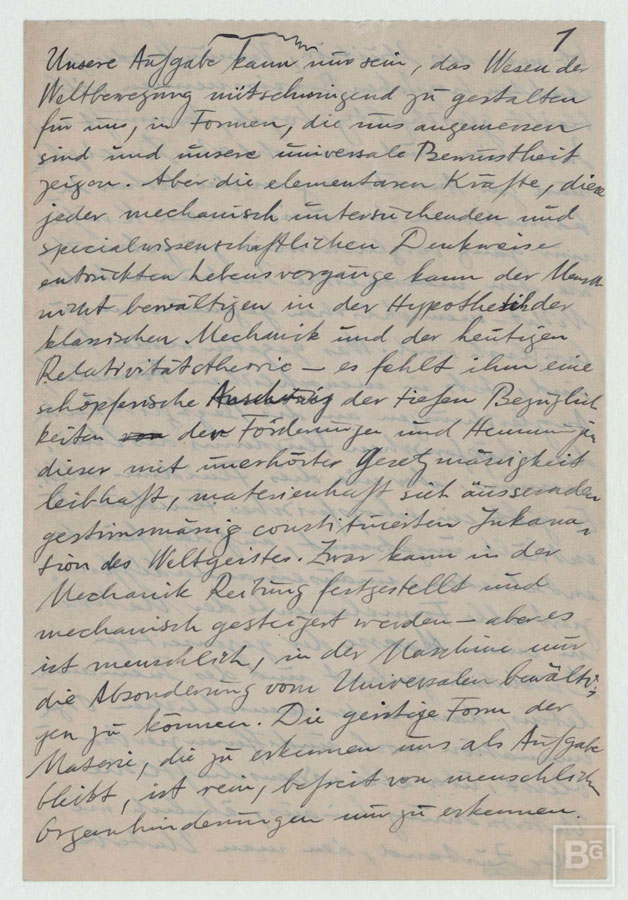 1
Unsere Aufgabe kann nur sein, das Wesen der
Weltbewegung mitschwingend zu gestalten
für uns, in Formen, die uns angemessen
sind und unsere universale Bewusstheit
zeigen. Aber die elementaren Kräfte, diese
jeder mechanisch untersuchenden und
specialwissenschaftlichen Denkweise
entrückten Lebensvorgänge kann der Mensch
nicht bewältigen in der Hypothetik der
klassischen Mechanik und der heutigen
Relativitätstheorie – es fehlt ihm eine
schöpferische Anschauung der tiefen Bezüglich
keiten von der Förderungen und Hemmungen
dieser mit unerhörter Gesetzmässigkeit
leibhaft, materienhaft sich äussernden
gestirnsmässig constituierten Inkarna-
tion des Weltgeistes. Zwar kann in der
Mechanik Reibung festgestellt und
mechanisch gesteigert werden – aber es
ist menschlich, in der Maschine nur
die Absonderung vom Universalen bewälti-
gen zu können. Die geistige Form der
Materie, die zu erkennen uns als Aufgabe
bleibt, ist rein, befreit von menschlichen
Organhinderungen nur zu erkennen.
BG